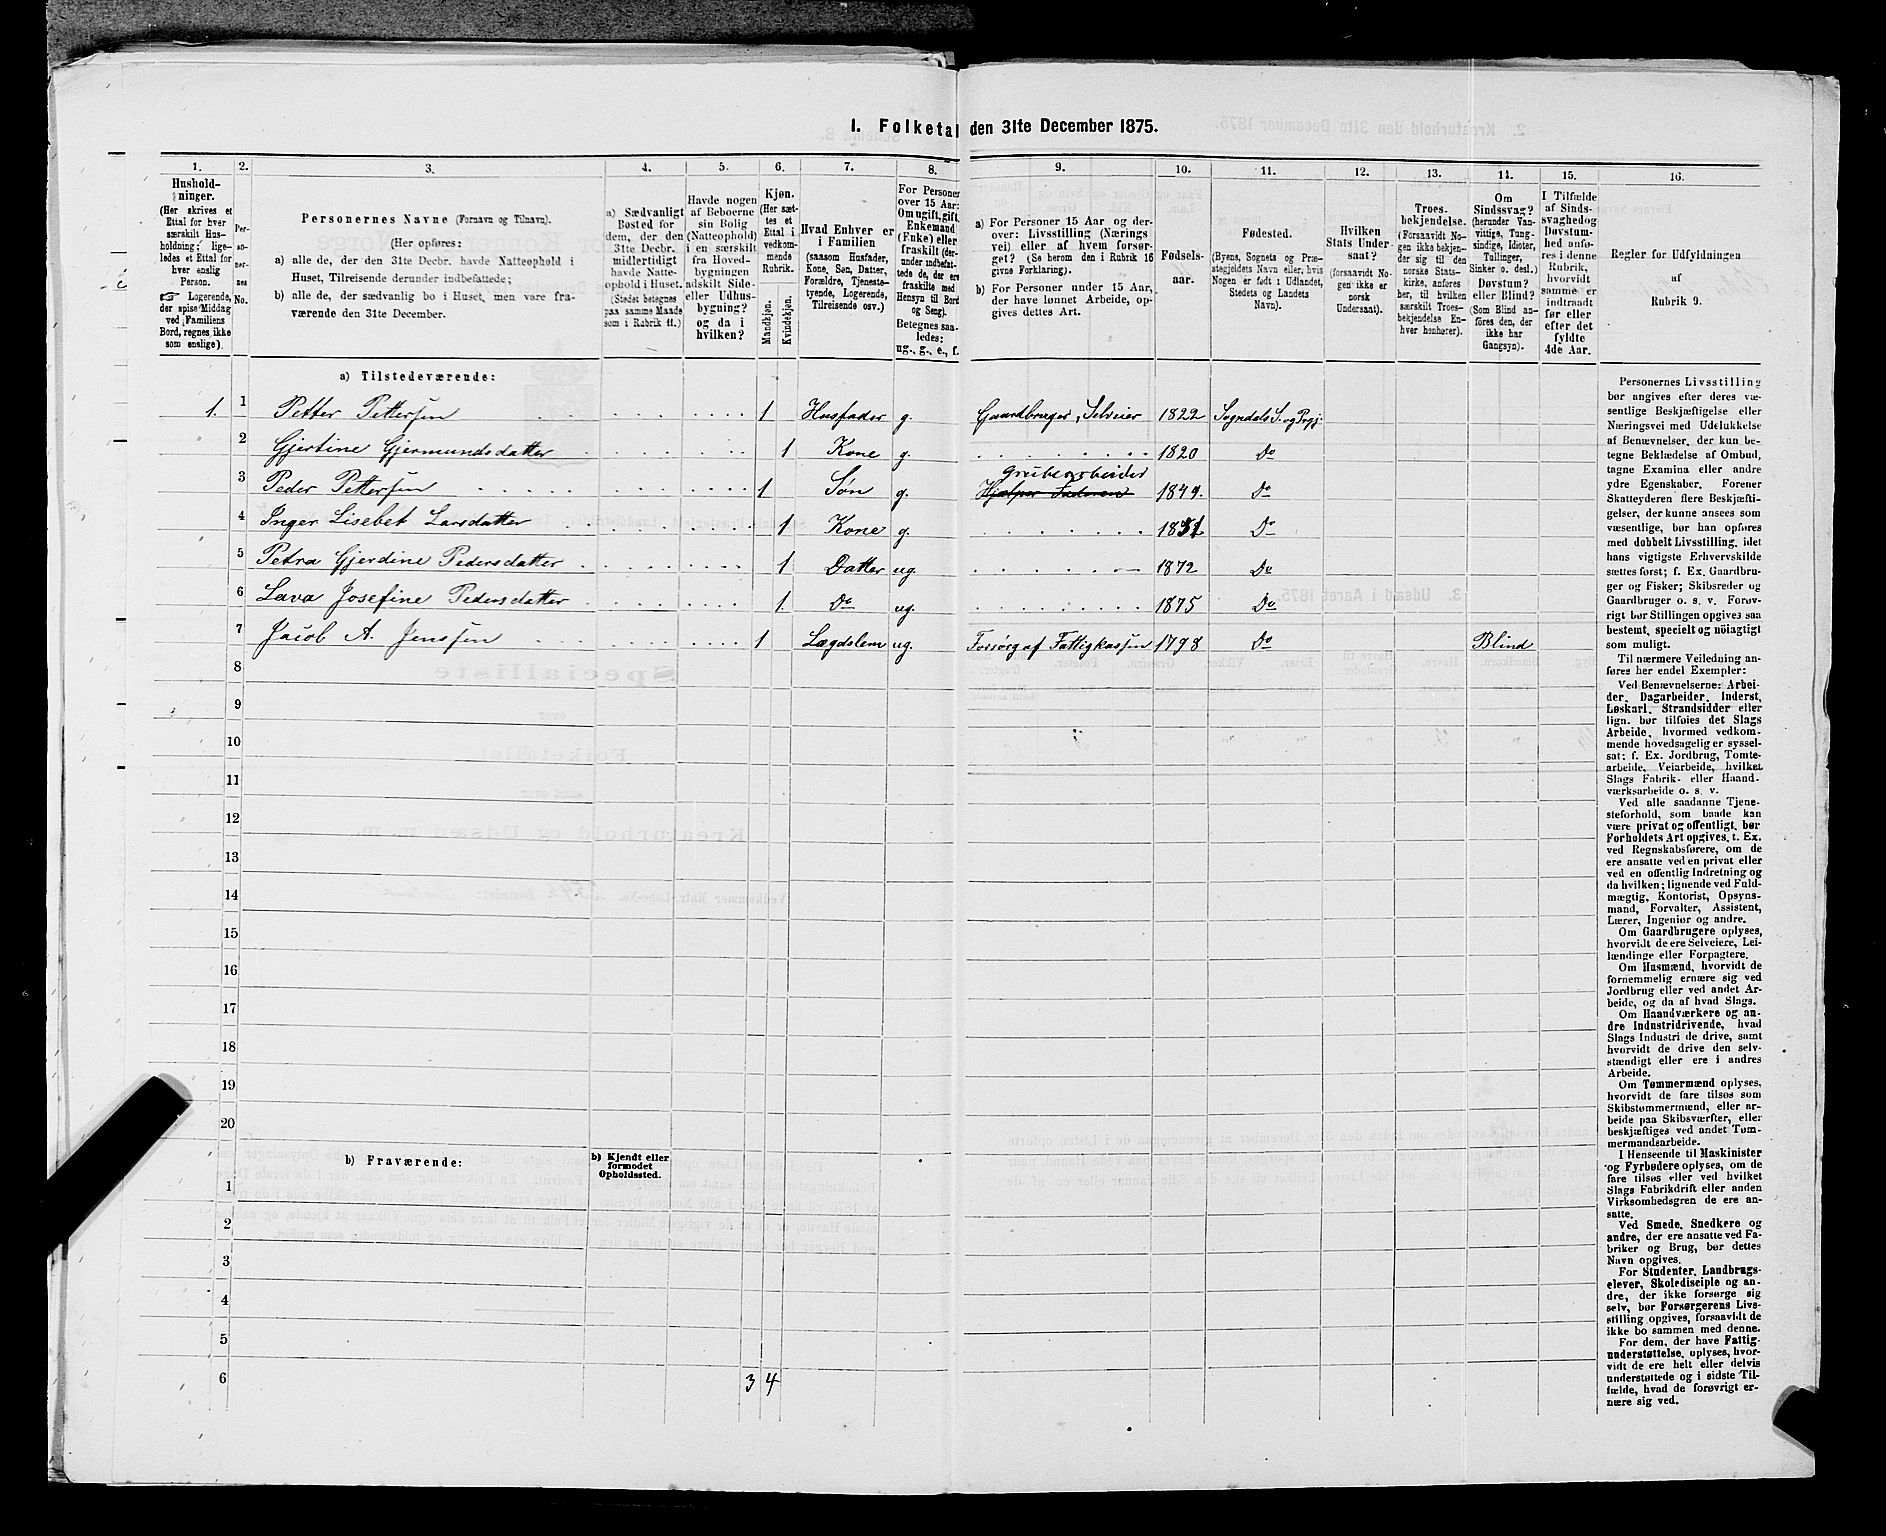 1. Folketal den 31te December 1875.
1. 2. 3. 4. 5. 6. 7. 8. 9. 10. 11. 12. 13. 14. 15. 16.
Hushold-
ninger.
(Her skrives et
Ettal for hver
særskilt Hus-
holdning; lige-
ledes et Ettal for
hver enslig
Person.
☞ Logerende,
der spise Middag
ved Familiens
Bord, regnes ikke
som enslige).
Per-
so-
ner-
nes
No.
Personernes Navne (Fornavn og Tilnavn).
(Her opføres:
a) alle de, der den 31te Decbr. havde Natteophold i
Huset, Tilreisende derunder indbefattede;
b) alle de, der sædvanlig bo i Huset, men vare fra-
værende den 31te December.
a) Sædvanligt
Bosted for
dem, der den
31te Decbr.
midlertidigt
havde Natte-
ophold i Huset.
(Stedet betegnes
paa samme Maade
som i Rubrik 11.)
Havde nogen
af Beboerne
sin Bolig
(Natteophold)
i en særskilt
fra Hoved-
bygningen
adskilt Side-
eller Udhus-
bygning?
og da i
hvilken?
Kjøn.
(Her sæt-
tes et
Ettal i
vedkom-
mende
Rubrik.
Mandkjøn.
Kvindekjøn.
Hvad Enhver er
i Familien
(saasom Husfader,
Kone, Søn, Datter,
Forældre, Tjeneste-
tyende, Logerende,
Tilreisende osv.)
For Personer
over 15 Aar:
Om ugift, gift,
Enkemand
(Enke) eller
fraskilt (der-
under indbefat-
tede de, der ere
fraskilte med
Hensyn til Bord
og Seng).
Betegnes saa-
ledes:
ug., g., e., f.
a) For Personer 15 Aar og der-
over: Livsstilling (Nærings-
vei) eller af hvem forsør-
get? (Se herom den i Rubrik 16
givne Forklaring).
b) For Personer under 15 Aar,
der have lønnet Arbeide, op-
gives dettes Art.
Fødsels-
aar.
Fødested.
(Byens, Sognets og Præ-
stegjeldets Navn eller, hvis
Nogen er født i Udlandet,
Stedets og Landets
Navn).
Hvilken
Stats Under-
saat?
(forsaavidt No-
gen ikke er
norsk
Undersaat).
Troes-
bekjendelse.
(Forsaavidt No-
gen ikke bekjen-
der sig til den
norske Stats-
kirke, anføres
her, til hvilken
særskilt Troes-
bekjendelse En-
hver henhører).
Om
Sindssvag?
(herunder Van-
vittige, Tung-
sindige, Idioter,
Tullinger,
Sinker o. desl.)
Døvstum?
eller Blind?
(Som Blind an-
føres den, der
ikke har
Gangsyn).
I Tilfælde
af Sinds-
svaghed og
Døvstum-
hed anfø-
res i denne
Rubrik,
hvorvidt
samme er
indtraadt
før eller
efter det
fyldte
4de Aar.
Regler for Udfyldningen
af
Rubrik 9.
a) Tilstedeværende:
1. 1 Petter Pettersen 1 Husfader g. Gaardbruger, Selveier 1822 Sogndals S. og Prgj.
2 Gjertine Gjermundsdatter 1 Kone g. 1820 Do
Grubearbeider
3 Peder Pettersen 1 Søn g. Hjelper Faderen 1849. Do
4 Inger Lisebet Larsdatter 1 Kone g. 1851 Do
5 Petra Gjerdine Pedersdatter 1 Datter ug. 1872 Do
6 Lava Josefine Pedersdatter 1. Do ug. 1875 Do
7 Jacob A. Jenssen 1 Lægdslem ug. Forsørg af Fattigkassen 1798 Do Blind
8
9
10
11
12
13
14
15
16
17
18
19
20
b) Fraværende:
b) Kjendt eller
formodet
Opholdssted.
1
2
3
4
5
6 3 4
Personernes Livsstilling
bør angives efter deres væ-
sentlige Beskjæftigelse eller
Næringsvei med Udelukkelse
af Benævnelser, der kun be-
tegne Beklædelse af Ombud,
tagne Examina eller andre
ydre Egenskaber. Forener
Skatteyderen flere Beskjæfti-
gelser, der kunne ansees som
væsentlige, bør han opføres
med dobbelt Livsstilling, idet
hans vigtigste Erhvervskilde
sættes først; f. Ex. Gaardbru-
ger og Fisker; Skibsreder og
Gaardbruger o. s. v. Forøv-
rigt bør Stillingen opgives saa
bestemt, specielt og nøiagtigt
som muligt.
Til nærmere Veiledning an-
føres her endel Exempler:
Ved Benævnelserne: Arbei-
der, Dagarbeider, Inderst,
Løskarl, Strandsidder eller
lign. bør tilføies det Slags
Arbeide, hvormed vedkom-
mende hovedsagelig er syssel-
sat; f. Ex. Jordbrug, Tomte-
arbeide, Veiarbeide, hvilket
Slags Fabrik- eller Haand-
værksarbeide o. s. v.
Ved alle saadanne Tjene-
steforhold, som baade kan
være privat og offentligt, bør
Forholdets Art opgives, t. Ex.
ved Regnskabsførere, om de
ere ansatte ved en privat eller
ved en offentlig Indretning og
da hvilken; lignende ved Fuld-
mægtig, Kontorist, Opsyns-
mand, Forvalter, Assistent,
Lærer, Ingeniør og andre.
Om Gaardbrugere oplyses,
hvorvidt de ere Selveiere, Lei-
lændinge eller Forpagtere.
Om Husmænd, hvorvidt de
fornemmelig ernære sig ved
Jordbrug eller ved andet Ar-
beide, og da af hvad Slags.
Om Haandværkere og an-
dre Industridrivende, hvad
Slags Industri de drive, samt
hvorvidt de drive den selv-
stændigt eller ere i andres
Arbeide.
Om Tømmermænd oplyses,
hvorvidt de fare tilsøs som
Skibstømmermænd, eller ar-
beide paa Skibsværfter, eller
beskjæftiges ved andet Tøm-
mermandsarbeide.
I Henseende til Maskinister
og Fyrbødere oplyses, om de
fare tilsøs eller ved hvilket
Slags Fabrikdrift eller anden
Virksomhedsgren de ere an-
satte.
Ved Smede, Snedkere og
andre, der ere ansatte ved Fa-
briker og Brug, bør dettes
Navn opgives.
For Studenter, Landbrugs-
elever, Skoledisciple og an-
dre, der ikke forsørge sig
selv, bør Forsørgerens Livs-
stilling opgives, forsaavidt de
ikke bo sammen med denne.
For dem, der have Fattig-
understøttelse, oplyses, hvor-
vidt de ere helt eller delvis
understøttede og i sidste Til-
fælde, hvad de forøvrigt er-
nære sig ved.